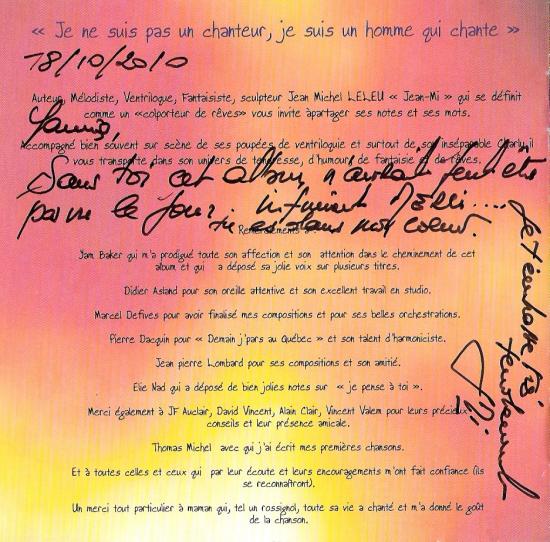 « Je ne suis pas un chanteur, je suis un homme qui chante »
18/10/2010
Auteur, Mélodiste, Ventrilogue, Fantaisiste, sculpteur Jean Michel LELEU « Jean-Mi » qui se définit
comme un «colporteur de rêves» vous invite àpartager ses notes et ses mots.
Accompagné bien souvent sur scène de ses poupées de ventriloquie et surtout de son inséparable Charly il
vous transporte dans son univers de tendresse, d'humour, de fantaisie et de rêves.
Sans toi cet album n'aurait peut être
pas vu le jour. infiniment Merci....
tu es dans mon coeur.
Je t'embrasse très
fort
Remerciements à :
Yam Baker qui m'a prodigué toute son affection et son attention dans le cheminement de cet
album et qui a déposé sa jolie voix sur plusieurs titres.
Didier Asland pour son oreille attentive et son excellent travail en studio.
Marcel Defives pour avoir finalisé mes compositions et pour ses belles orchestrations.
Pierre Dacquin pour « Demain j'pars au Québec » et son talent d'harmoniciste.
Jean pierre Lombard pour ses compositions et son amitié.
Elie Nad qui a déposé de bien jolies notes sur « je pense à toi ».
Merci également à JF Auclair, David Vincent, Alain Clair, Vincent Valem pour leurs précieux
conseils et leur présence amicale.
Thomas Michel avec qui j'ai écrit mes premières chansons.
Et à toutes celles et ceux qui par leur écoute et leurs encouragements m'ont fait confiance (ils
se reconnaîtront).
Un merci tout particulier à maman qui, tel un rossignol, toute sa vie a chanté et m'a donné le goût
de la chanson.